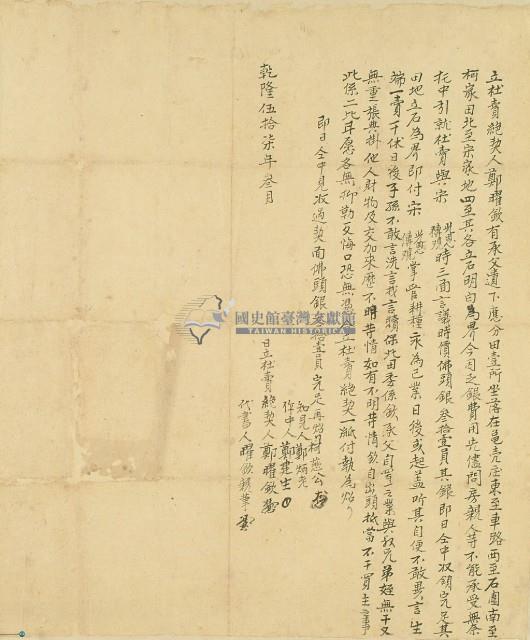 立杜賣絕契人鄭曜欽有承父遺下應分田壹所坐落在龜壳庄東至車路西至石圍南至
柯家田北至宋家地四至其各立石明白為界今因乏銀費用先儘問房親人等不能承受無奈
托中引就杜賣與宋 時三面言議時價佛頭銀叁拾壹員其銀即日仝中收領完足其
田地立石為界即付宋 掌管耕種永為己業日後或起蓋听其自便不敢異言生
端一賣千休日後子孫不敢言洗言找言贖保此田委係欽承父自置之業與叔兄弟姪無干又
無重張典掛他人財物及交加來歷不明等情如有不明等情欽自出頭抵當不干買主之事
此係二比甘愿各無抑勒反悔口恐無憑立杜賣絕契一紙付執為炤
即日仝中見收過契面佛頭銀叁拾壹員完足再炤
乾隆伍拾柒年叁月 日立杜賣絕契人鄭曜欽
知見人鄭炳光
作中人鄭建生
代書人曜欽親筆
國史館臺灣文獻館
TAIWAN HISTORICA